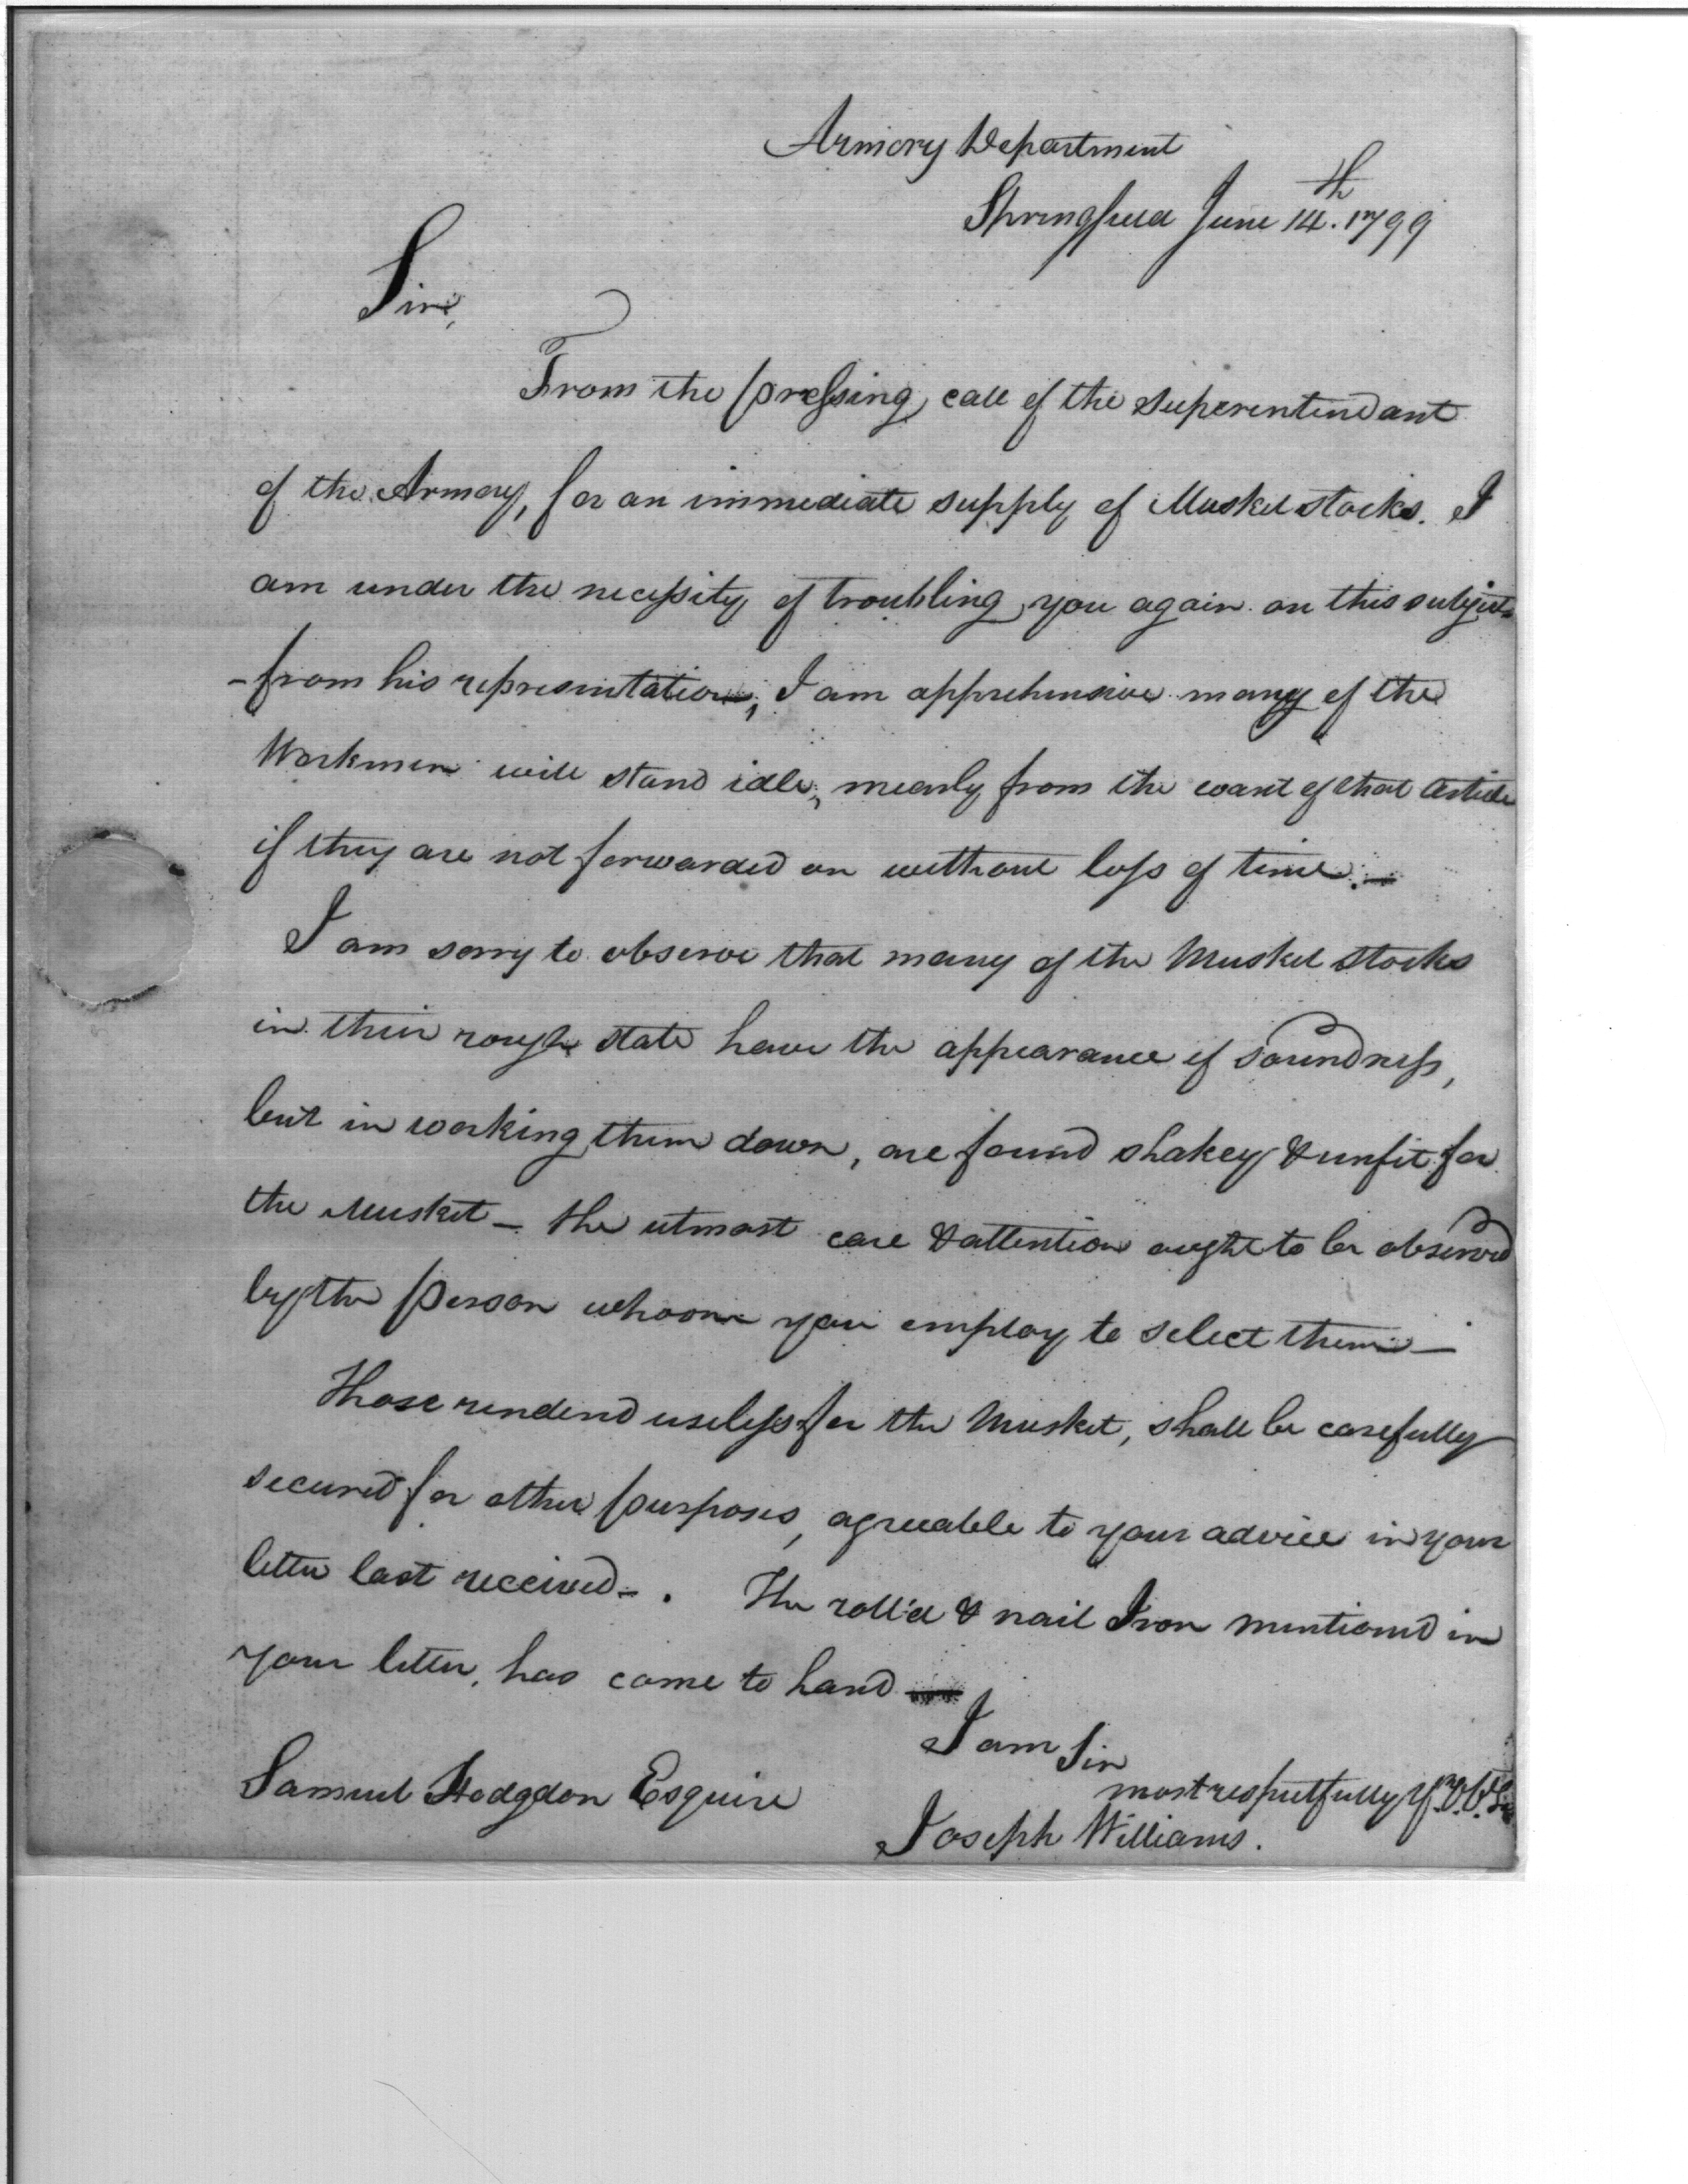 Armory Department
Springfield June 14th. 1799
Sir,
From the pressing call of the Superintendant
of the Armory, for an immediate supply of Musket stocks. I
am under the necessity of troubling you again on this subject
- from his representation, I am apprehensive many of the
Workmen will stand idle, mearly from the want of that Article
if they are not forwarded on without loss of time. —
I am sorry to observe that many of the Musket Stocks
in their rough state have the appearance of Soundness,
but in working them down, are found shakey & unfit for
the Musket — the utmost care & attention ought to be observed
by the person whoom you employ to select them —
Those renderd useless for the Musket, shall be carefully
secured for other purposes, agreeable to your advice in your
letter last received -. The roll'd & nail Iron mentioned in
your letter, has come to hand —
I am Sir
most respectfully Yr. O.
Samuel Hodgdon Esquire
Joseph Williams.